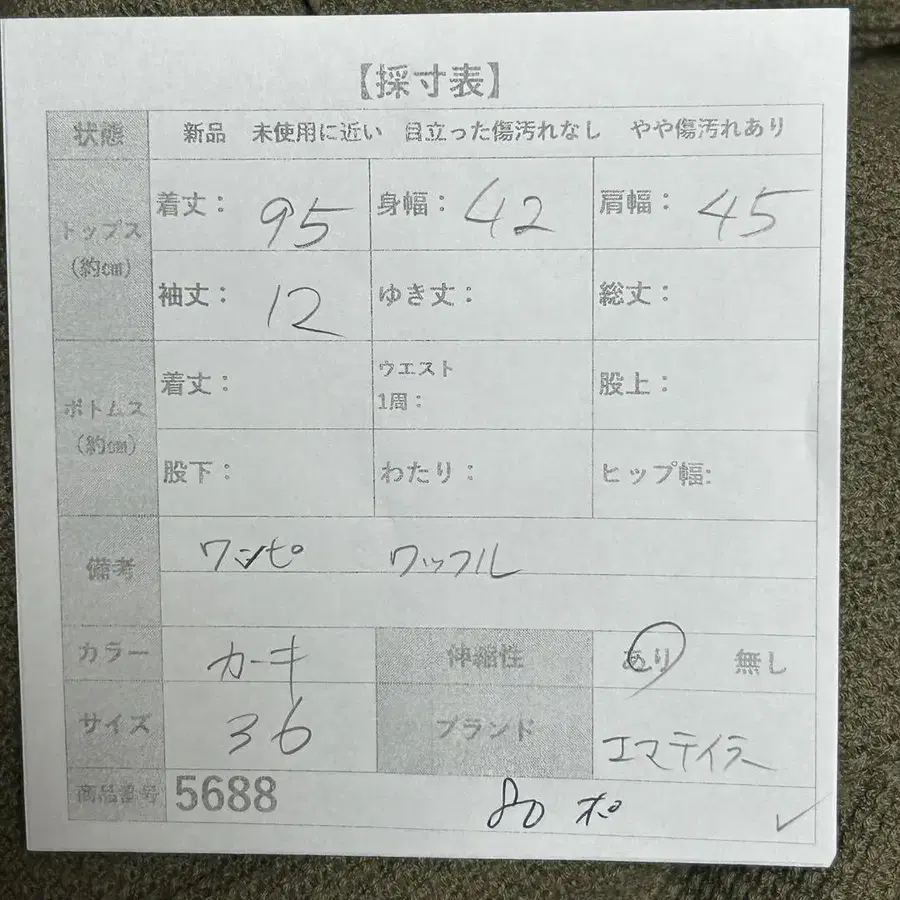 【採寸表】
状態 新品 未使用に近い 目立った傷汚れなし やや傷汚れあり
トップス (約cm)
着丈： 95 身幅： 42 肩幅： 45
袖丈： 12 ゆき丈： 総丈：
ボトムス (約cm)
着丈： ウエスト 1周： 股上：
股下： わたり： ヒップ幅:
備考 ワンピ ワッフル
カラー カーキ 伸縮性 あり 無し
サイズ 36 ブランド エマテイラー
商品番号 5688 80 ポ